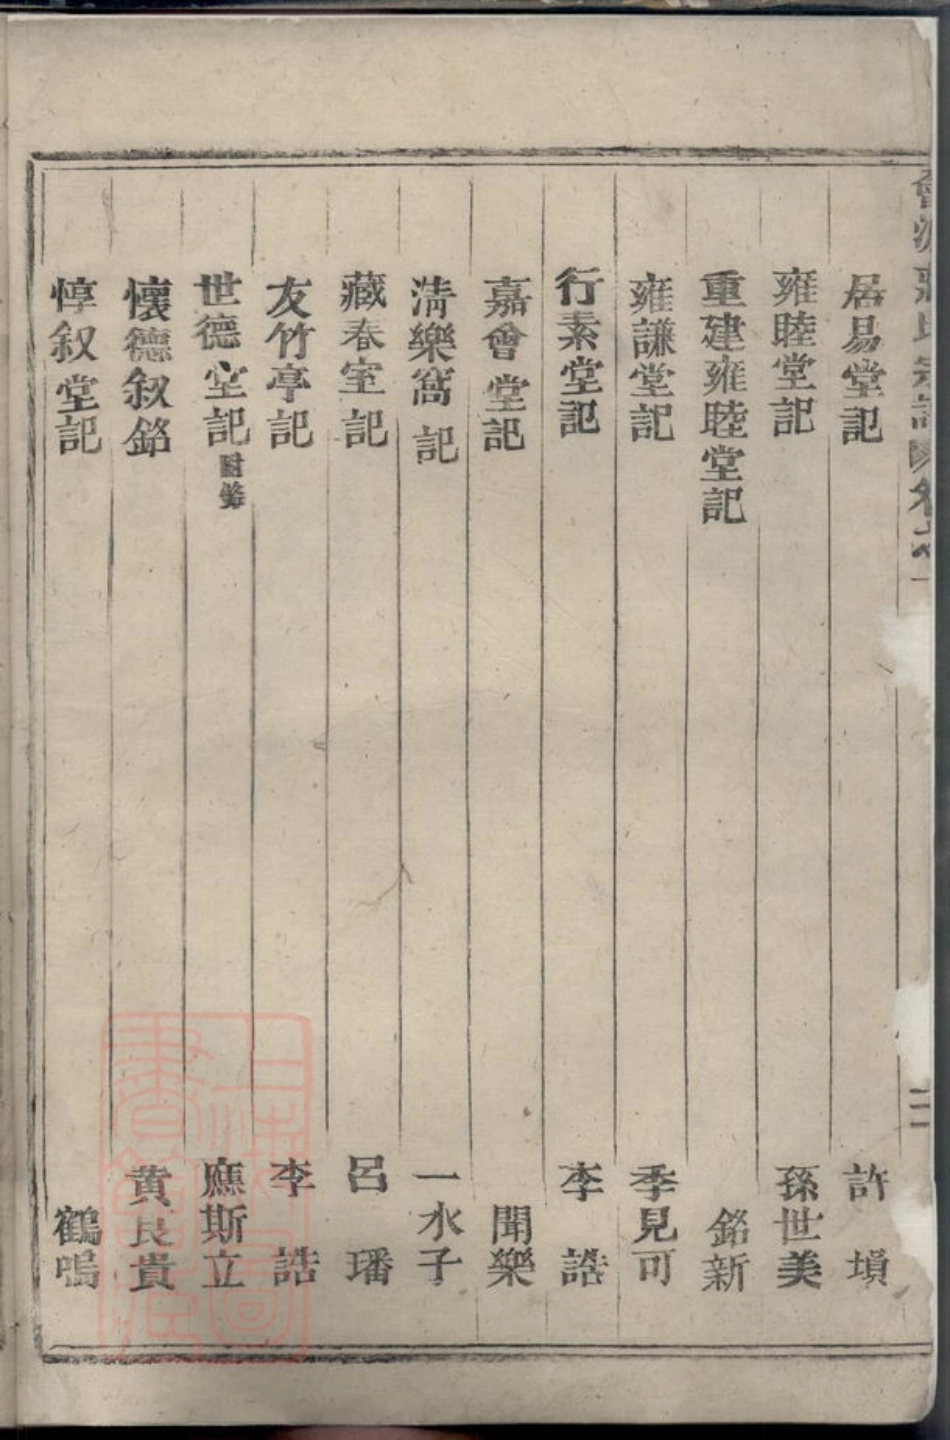 居易堂記 許塤
雍睦堂記 孫世美
重建雍睦堂記 銘新
雍謙堂記 季見可
行素堂記 李誥
嘉會堂記 聞樂
淸樂窩記 一水子
藏春室記 呂璠
友竹亭記 李誥
世德堂記 附 應斯立
懷德叙銘 黃良貴
惇叙堂記 鶴鳴
二